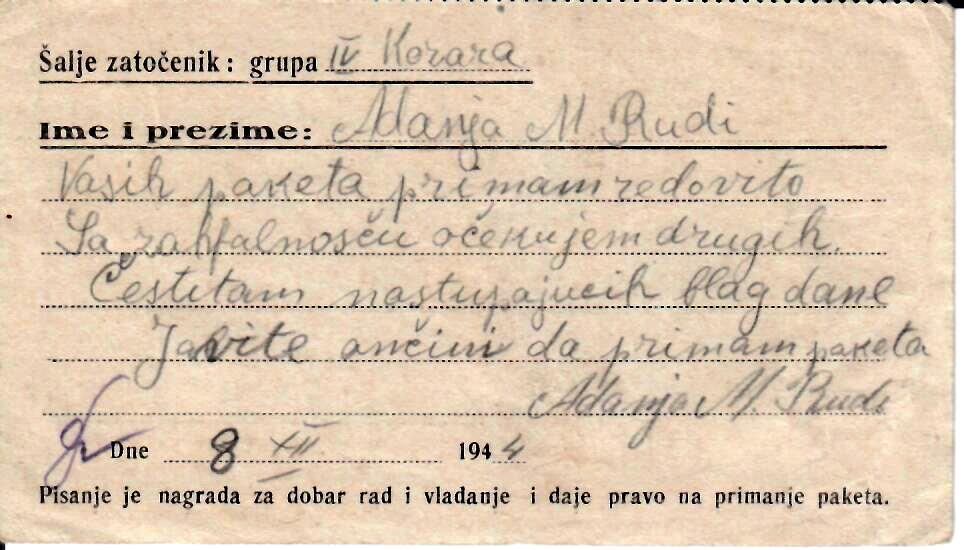 Šalje zatočenik: grupa IV Kozara
Ime i prezime: Adanja M. Rudi
Vasih paketa primam redovito
Sa zahfalnosču očekujem drugih.
Čestitam nastupajucih blag dane
Javite ončini da primam paketa
Adanja M. Rudi
Dne 8 XII 1944
Pisanje je nagrada za dobar rad i vladanje i daje pravo na primanje paketa.